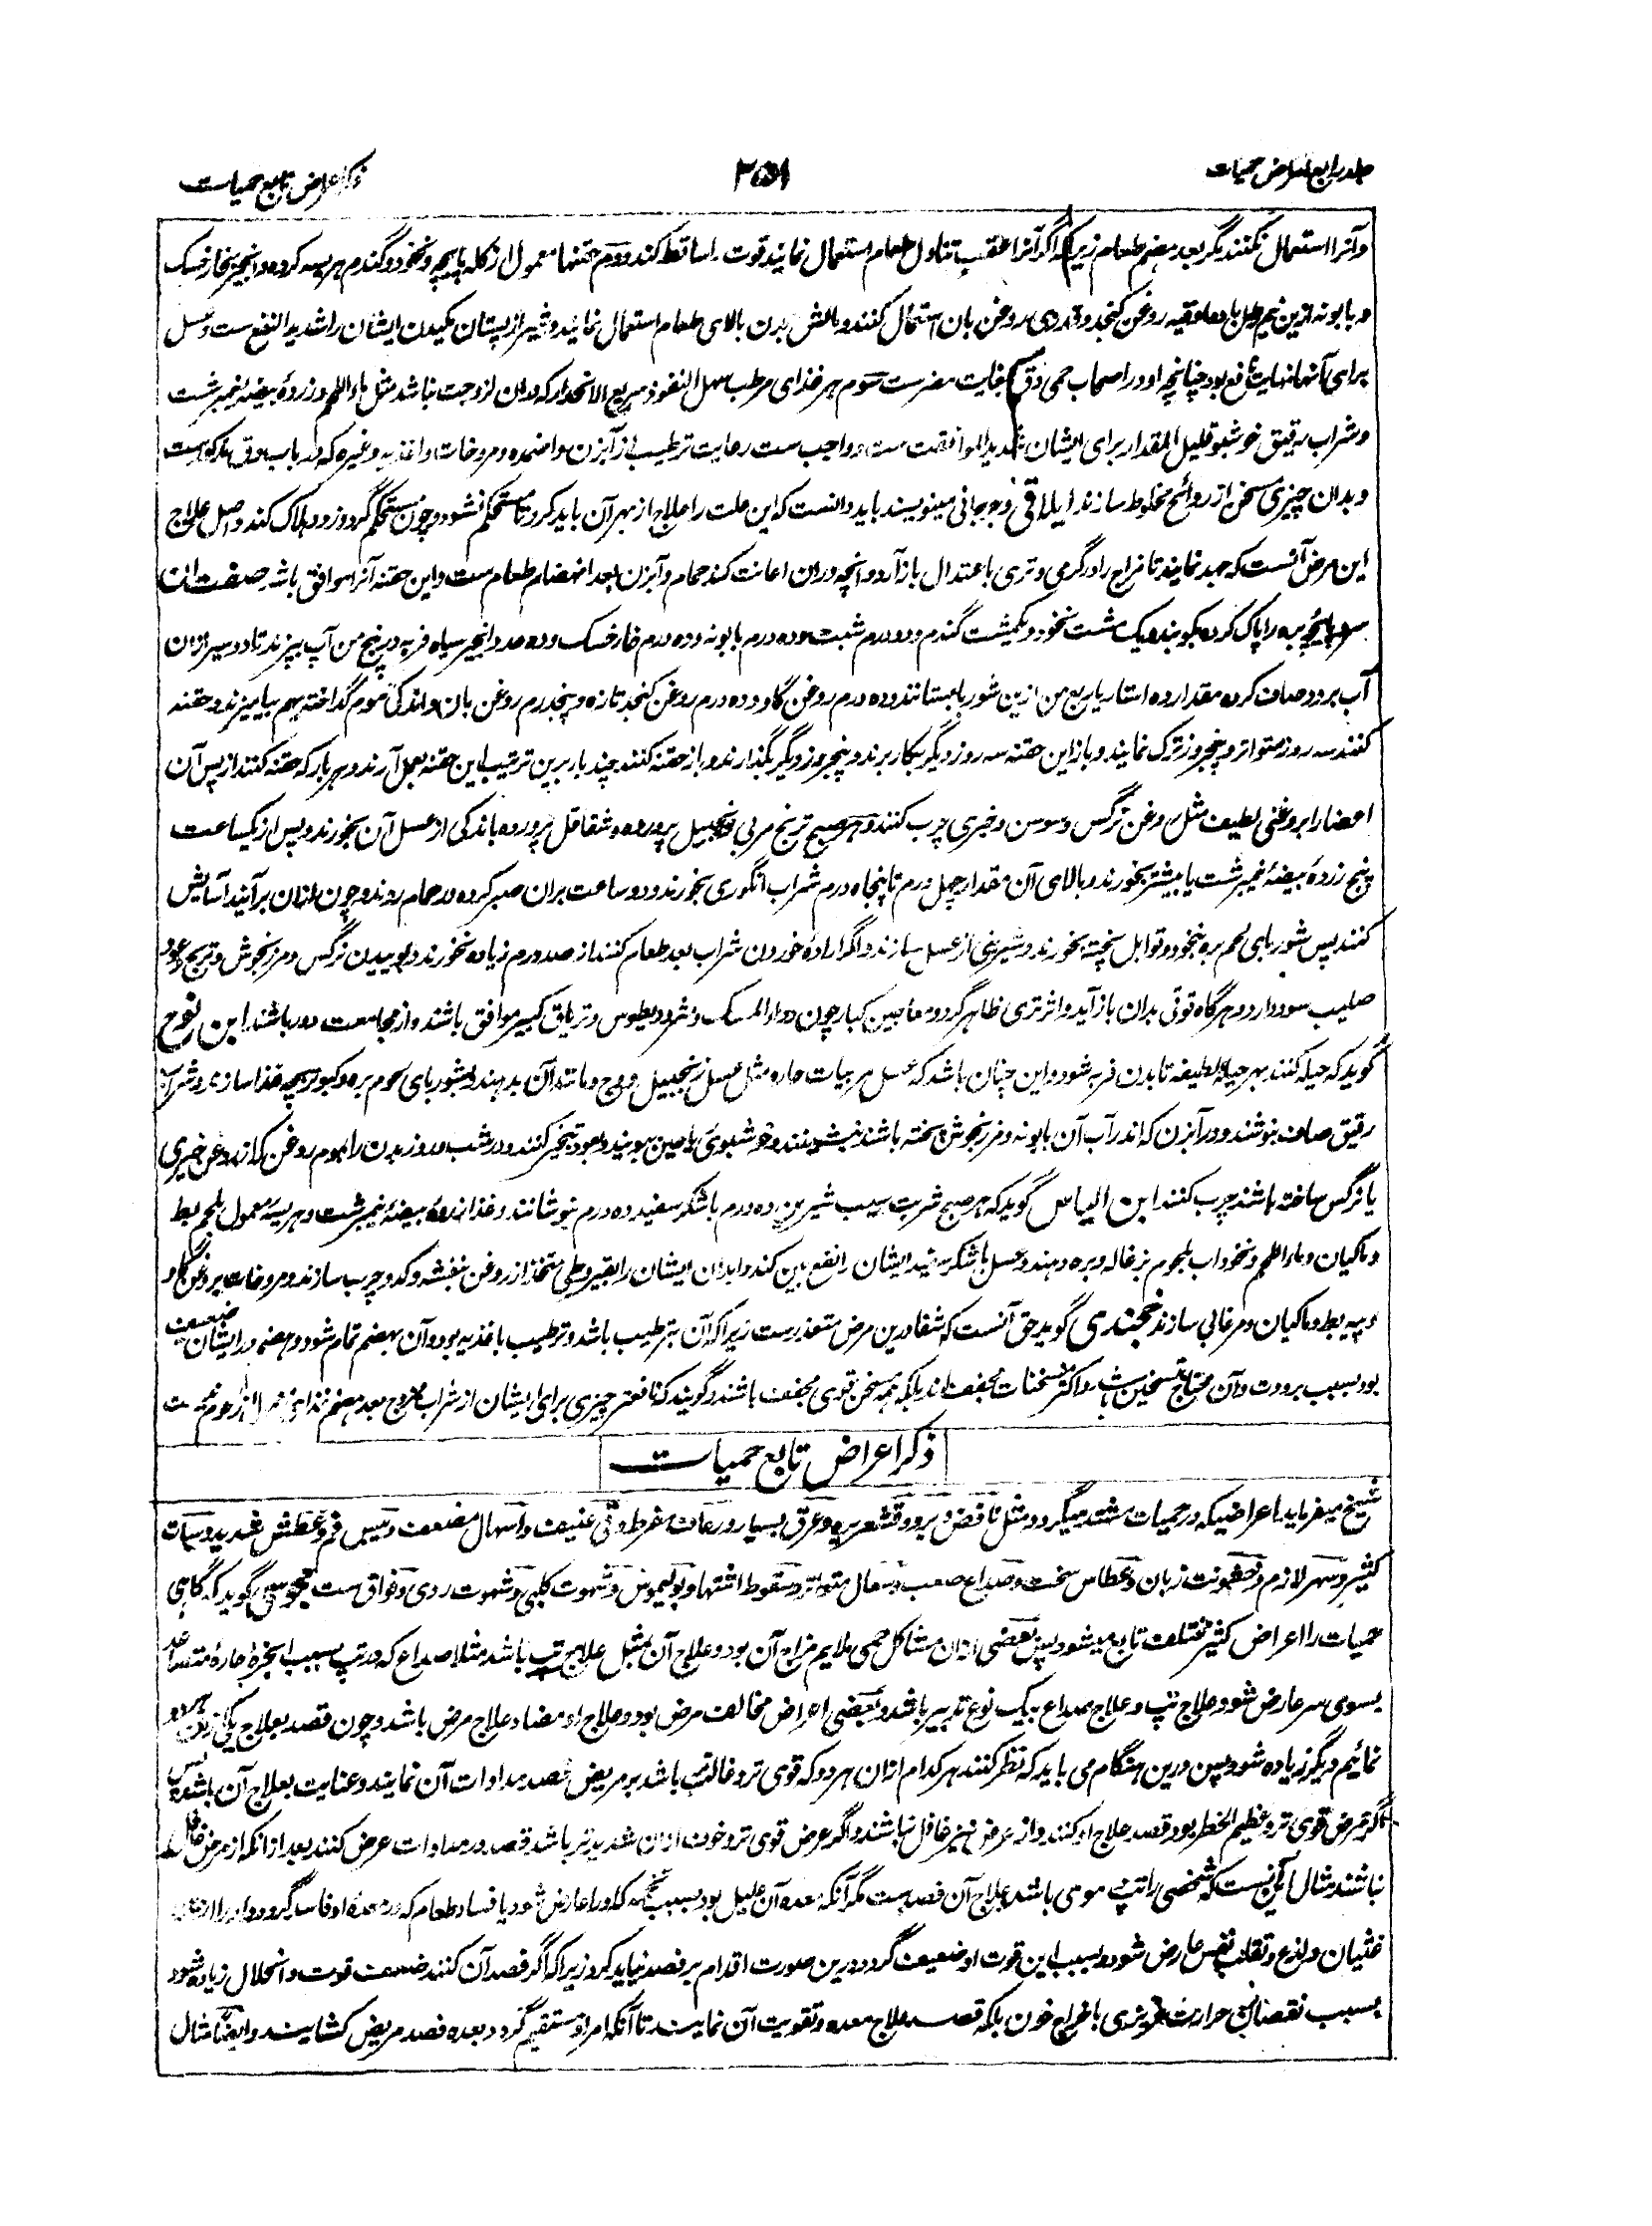 جلد رابع امراض حمیات
۳۵۱
ذکر اعراض تابع حمیات
و آنرا استعمال نکنند مگر بعد هضم طعام زیرا که اگر آنرا عقب تناول طعام استعمال نمایند قوت را ساقط کند دوم حقنها معمول از کله پاچه و نخود و گندم هریسه کرده و انجیر و خار خسک
و بابونه ازین نیم رطل با دو اوقیه روغن کنجد و قدری روغن بان استعمال کنند و مالش بدن بالای طعام استعمال نمایند و شیر از پستان مکیدن ایشان را شدید النفع ست و عسل
برای آنها نهایت نافع بود چنانچه او در اصحاب حمی دق بغایت مضرست سوم هر غذای مرطب سهل النفوذ سریع الانحدار که دران لزوجت نباشد مثل ماء اللحم و زردهٔ بیضهٔ نیمبرشت
و شراب رقیق خوشبو قلیل المقدار برای ایشان شدید الموافقت ست و واجب ست رعایت ترطیب از آبزن و اضمده و مروخات و اغذیه و غیره که در باب دق مذکورست
و بدان چیزی مسخن از روائح مخلوط سازند ایلاقی و جرجانی مینویسند باید دانست که این علت را علاج از بهر آن باید کرد تا مستحکم نشود و چون مستحکم گردد زود هلاک کند و اصل علاج
این مرض آنست که جهد نمایند تا مزاج را در گرمی و تری باعتدال باز آرد و آنچه دران اعانت کند حمام و آبزن بعد انهضام طعام ست و این حقنه آنرا موافق باشد صفت ان
سر و پاچهٔ بره را پاک کرده بکوبند و یک مشت نخود و یکمشت گندم و ده درم شبت و ده درم بابونه و ده درم خار خسک و ده عدد انجیر سیاه فربه در پنج من آب بپزند تا دو سیر ازان
آب برود صاف کرده مقدار ده استار یا ربع من ازین شوربا بستانند و ده درم روغن گاو و ده درم روغن کنجد تازه و پنجدرم روغن بان و اندکی موم گداخته بهم بیامیزند و حقنه
کنند سه روز متواتر و پنج روز ترک نمایند و باز این حقنه سه روز دیگر بکار برند و پنجروز دیگر بگذارند و باز حقنه کنند چند بار برین ترتیب این حقنه بعمل آرند و هر بار که حقنه کنند از پس آن
اعضا را بروغنی لطیف مثل روغن نرگس و سوسن و خیری چرب کنند و هر صبح ترنج مربی و زنجبیل پرورده و شقاقل پرورده باندکی از عسل آن بخورند و پس از یکساعت
پنج زردهٔ بیضهٔ نیمبرشت یا بیشتر بخورند و بالای آن مقدار چهل درم تا پنجاه درم شراب انگوری بخورند و دو ساعت بران صبر کرده در حمام روند و چون ازان برآیند آسایش
کنند پس شوربای لحم بره بنخود و توابل پخته بخورند و شیرینی از عسل سازند و اگر ارادهٔ خوردن شراب بعد طعام کنند از صد درم زیاده نخورند و بوییدن نرگس و مرزنجوش و ترنج و عود
صلیب سود دارد و هرگاه قوتی بدان باز آید و اثر تری ظاهر گردد معاجین کبار چون دواء المسک و مثرودیطوس و تریاق کبیر موافق باشند و از مجامعت دور باشند ابن نوح
گوید که حیله کنند بهر حیلهٔ لطیفه تا بدن فربه شود و این چنان باشد که عسل مربیات حاره مثل عسل زنجبیل و وج و مانند آن بدهند و شوربای لحوم بره و کبوتر بچه غذا سازند و شراب
رقیق صاف بنوشند و در آبزن که اندر آب آن بابونه و مرزنجوش پخته باشند بنشینند و خوشبوی یاسمین ببویند و بعود تبخیر کنند و در شب و روز بدن را بموم روغن که از روغن خیری
یا نرگس ساخته باشند چرب کنند ابن الیاس گوید که هر صبح شربت سیب شیرین ده درم با شکر سفید ده درم بنوشانند و غذا زردهٔ بیضهٔ نیمبرشت و هریسه معمول بلحم بط
و ماکیان و ماء اللحم و نخوداب بلحوم بزغاله و بره دهند و عسل با شکر سفید ایشان را نفع بین کند و ابدان ایشان را بقیروطی متخذ از روغن بنفشه و کدو چرب سازند و مروخات بروغن گاو
و پیه بط و ماکیان و مرغابی سازند خجندی گوید حق آنست که شفا درین مرض متعذرست زیرا که آن بترطیب باشد و ترطیب باغذیه بود و آن بهضم تمام شود و هضم در ایشان ضعیف
بود بسبب برودت و آن محتاج تسخین باشد و اکثر مسخنات مجفف اند بلکه همه مسخن قوی مجفف باشند و گویند که نافعتر چیزی برای ایشان از شراب ممزوج بعد هضم غذا
ذکر اعراض تابع حمیات
شیخ میفرماید اعراضیکه در حمیات مشتد میگردد مثل نافض و برد و قشعریره و عرق بسیار و رعاف مفرط و قی عنیف و اسهال مضعف و یبس فم و عطش شدید و سبات
کثیر و سهر لازم و خشونت زبان و عطاس سخت و صداع صعب و سعال متواتر و سقوط اشتها و بولیموس و شهوت کلبی و شهوت ردی و فواق ست مجوسی گوید که گاهی
حمیات را اعراض کثیر مختلف تابع میشود پس بعضی ازان مشاکل حمی ملایم مزاج آن بود و علاج آن بمثل علاج تپ باشد مثلا صداع که در تپ بسبب ابخرهٔ حارهٔ متصاعد
بسوی سر عارض شود و علاج تپ و علاج صداع بیک نوع تدبیر باشد و بعضی اعراض مخالف مرض بود و علاج او مضاد علاج مرض باشد و چون قصد بعلاج یکی ازین هر دو
نمائیم دیگر زیاده شود پس درین هنگام می باید که نظر کنند هر کدام ازان هر دو که قوی تر و غالبتر باشد بر مریض قصد مداوات آن نمایند و عنایت بعلاج آن باشد پس
اگر مرض قوی تر و عظیم الخطر بود قصد علاج او کنند و از عرض نیز غافل نباشند و اگر عرض قوی تر و خوف ازان شدیدتر باشد قصد در مداوات عرض کنند بعد ازانکه از مرض غافل
نباشند مثال این نیست که شخصی را تپ دموی باشد علاج آن فصد ست مگر آنکه معده آن علیل بود بسبب که او را عارض شود یا فساد طعام که در معدهٔ او فاسد گردد و او را ازان
غثیان و لذع و تقلب نفس عارض شود و بسبب این قوت او ضعیف گردد درین صورت اقدام بر فصد نباید کرد زیرا که اگر فصد آن کنند ضعف قوت و انحلال زیاده شود
بسبب نقصان حرارت غریزی باخراج خون بلکه قصد علاج معده و تقویت آن نمایند تا آنکه امر او مستقیم گردد بعده فصد مریض کشایند و ایضا مثال